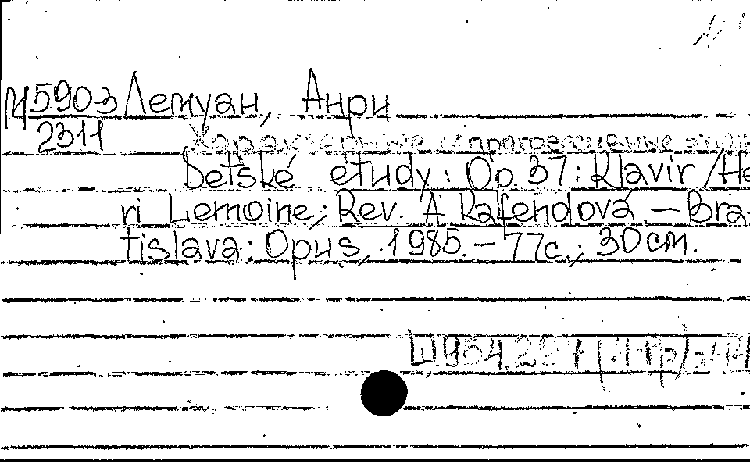 М5903 Лемуан, Анри
2311 Характерные и прогрессивные
Detské etudy: Op. 37: Klavir / He
ri Lemoine; Rev. A Rafendová – Bra
tislava: Opus, 1985. – 77с.; 30см.
Ш954.221